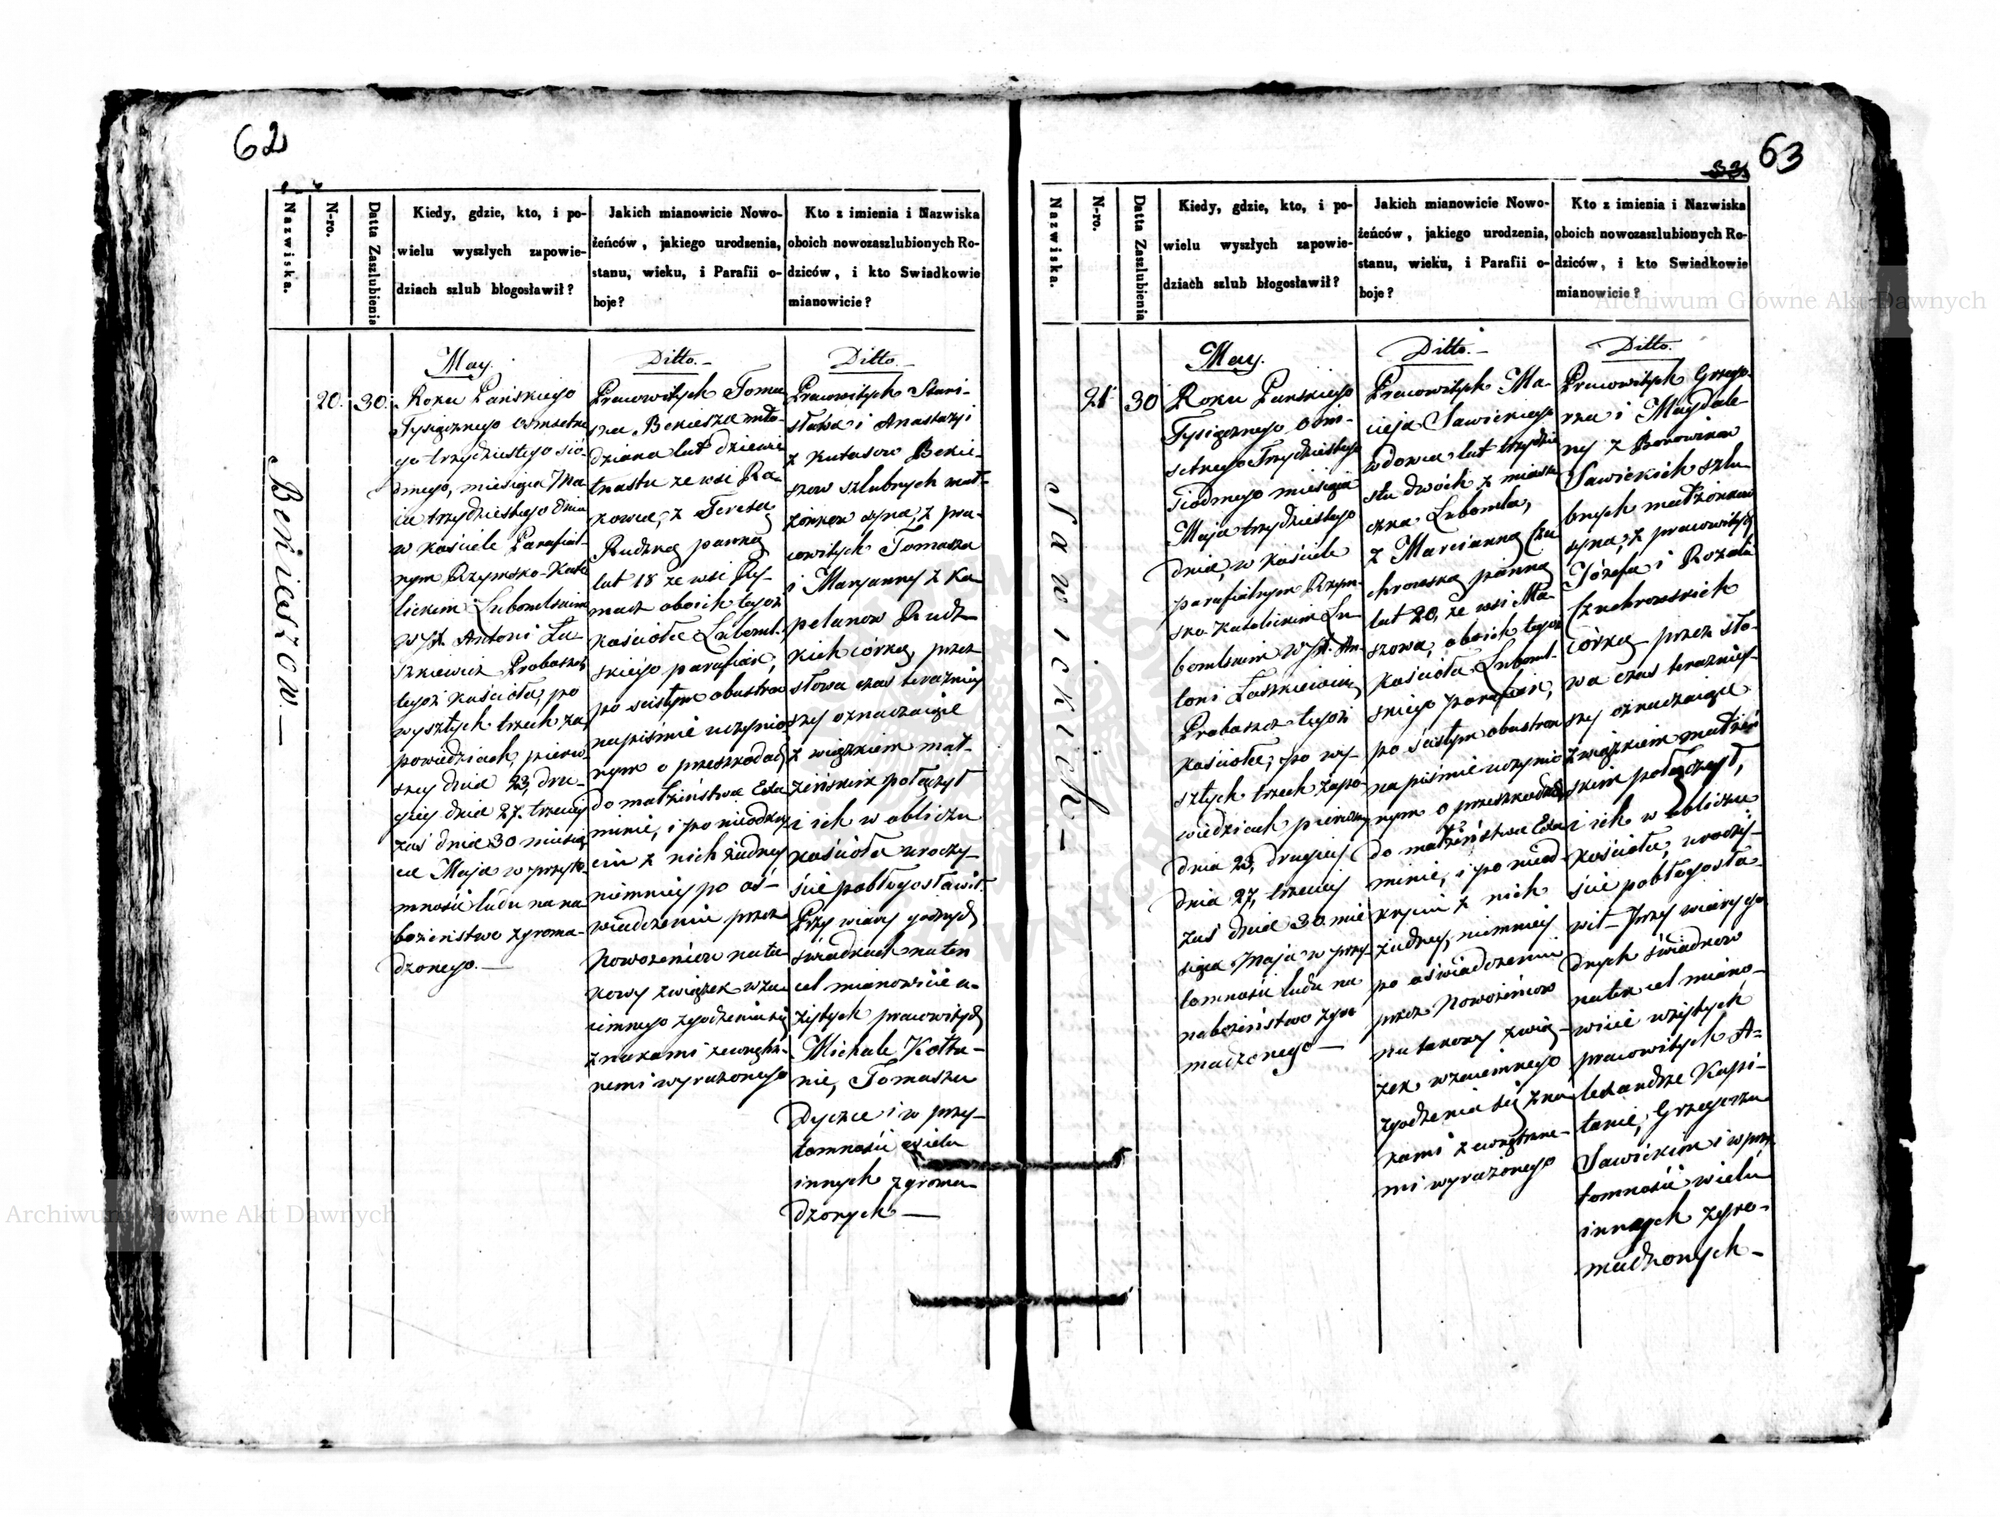 62
Nazwiska.
N-ro.
Data Zaszlubienia
Kiedy, gdzie, kto, i po-
wielu wyszłych zapowie-
dziach szlub błogosławił?
Jakich mianowicie Nowo-
żeńców, jakiego urodzenia,
stanu, wieku, i Parafii o-
boje?
Kto z imienia i Nazwiska
oboich nowozaszlubionych Ro-
dziców, i kto Swiadkowie
mianowicie?
Bekieszow.—
20.
30.
May.
Roku Pańskiego
Tysiącznego Osmsetne
go trzydziestego sió
dmego, miesiąca Ma
ia trzydziestego dnia
w kościele Parafial-
nym Rzymsko-Kato
lickim Lubomlskim
WJX. Antoni Ła
szkiewicz Proboszcz
tegoż kościoła, po
wyszłych trzech za
powiedziach, pierw
szey dnia 23, dru-
giey dnia 27. trzeciey
zaś dnia 30 miesią
ca Maja w przyto
mności ludu na na
bożeństwo zgroma-
dzonego.—
Ditto.—
Pracowitych Toma
sza Bekiesza mło-
dziana lat dziewie
tnastu ze wsi Ra-
kowca, z Teresą
Rudzką panną
lat 18 ze wsi Ry-
macz oboich tegoż
kościoła Luboml-
skiego parafian,
po scisłym obustron
napismie uczynio
nym o przeszkodach
do małżeństwa Exa
minie, i po nieodkry
ciu z nich żadney
niemniey po oś-
wiadczeniu przez
Nowożeńców na ta
kowy związek wza
iemnego zgodzenia się
znakami zewnętrz-
nemi wyrażonego
Ditto.—
Pracowitych Stani-
sława i Anastazyi
z Kutasow Bekie-
szow szlubnych mał-
żonkow syna, z pra-
cowitych Tomasza
i Maryanny z Ka
pelanow Rudz
kich córką, przez
słowa czas teraźniey
szy oznaczaiące
związkiem mał-
żeńskim połączył
i ich w obliczu
kościoła uroczy-
ście pobłogosławił.
Przy wiary godnych
świadkach na ten
cel mianowicie u-
żytych pracowitych
Michale Kołtu-
nie, Tomaszu
Dyczce i w przy-
tomności wielu
innych zgroma-
dzonych—
63
33.
Nazwiska.
N-ro.
Datta Zaszlubienia
Kiedy, gdzie, kto, i po-
wielu wyszłych zapowie-
dziach szlub błogosławił?
Jakich mianowicie Nowo-
żeńców, jakiego urodzenia,
stanu, wieku, i Parafii o-
boje?
Kto z imienia i Nazwiska
oboich nowozaszlubionych Ro-
dziców, i kto Swiadkowie
mianowicie?
Sawickich—
21
30
May.
Roku Pańskiego
Tysiącznego Ośm-
setnego Trzydziestego
Siodmego miesiąca
Maja trzydziestego
dnia, w kościele
parafialnym Rzym-
sko-Katolickim Lu-
bomlskim WJX. An-
toni Łaszkiewicz
Proboszcz tegoż
kościoła, po wy-
szłych trzech zapo-
wiedziach pierwszey
dnia 23, drugiey
dnia 27, trzeciey
zaś dnia 30 mie
siąca Maja w przy-
tomności ludu na
nabożeństwo zgro
madzonego—
Ditto.—
Pracowitych Ma-
cieja Sawickiego
wdowca lat trzydzie
stu dwóch z miaste
czka Lubomla,
z Marcianną Czu
chrowską panną
lat 20, ze wsi Ma-
szowa, oboich tegoż
kościoła Luboml-
skiego parafian,
po scisłym obustron
na piśmie uczynio
nym o przeszkodach
do małżeństwa Exa
minie, i po nieod
kryciu z nich
żadney, niemniey
po oświadczeniu
przez Nowożeńcow
na takowy zwią-
zek wzaiemnego
zgodzenia się zna
kami zewnętrzne-
mi wyrażonego
Ditto.
Pracowitych Grzego
rza i Magdale
ny z Borowzkow
Sawickich szlu
bnych małżonkow
syna, z pracowitych
Józefa i Rozalii
Czuchrowskich
córką—przez sło-
wa czas teraźniey-
szy oznaczaiące
związkiem małżeń
skim połączył,
i ich w obliczu
kościoła, uroczy-
ście pobłogosła-
wił—Przy wiary go
dnych świadkow
na ten cel miano-
wicie użytych
pracowitych A-
lexandrze Kapi-
tanie, Grzegorzu
Sawickim i w przy
tomności wielu
innych zgro-
madzonych—
Archiwum Główne Akt Dawnych
Archiwum Główne Akt Dawnych